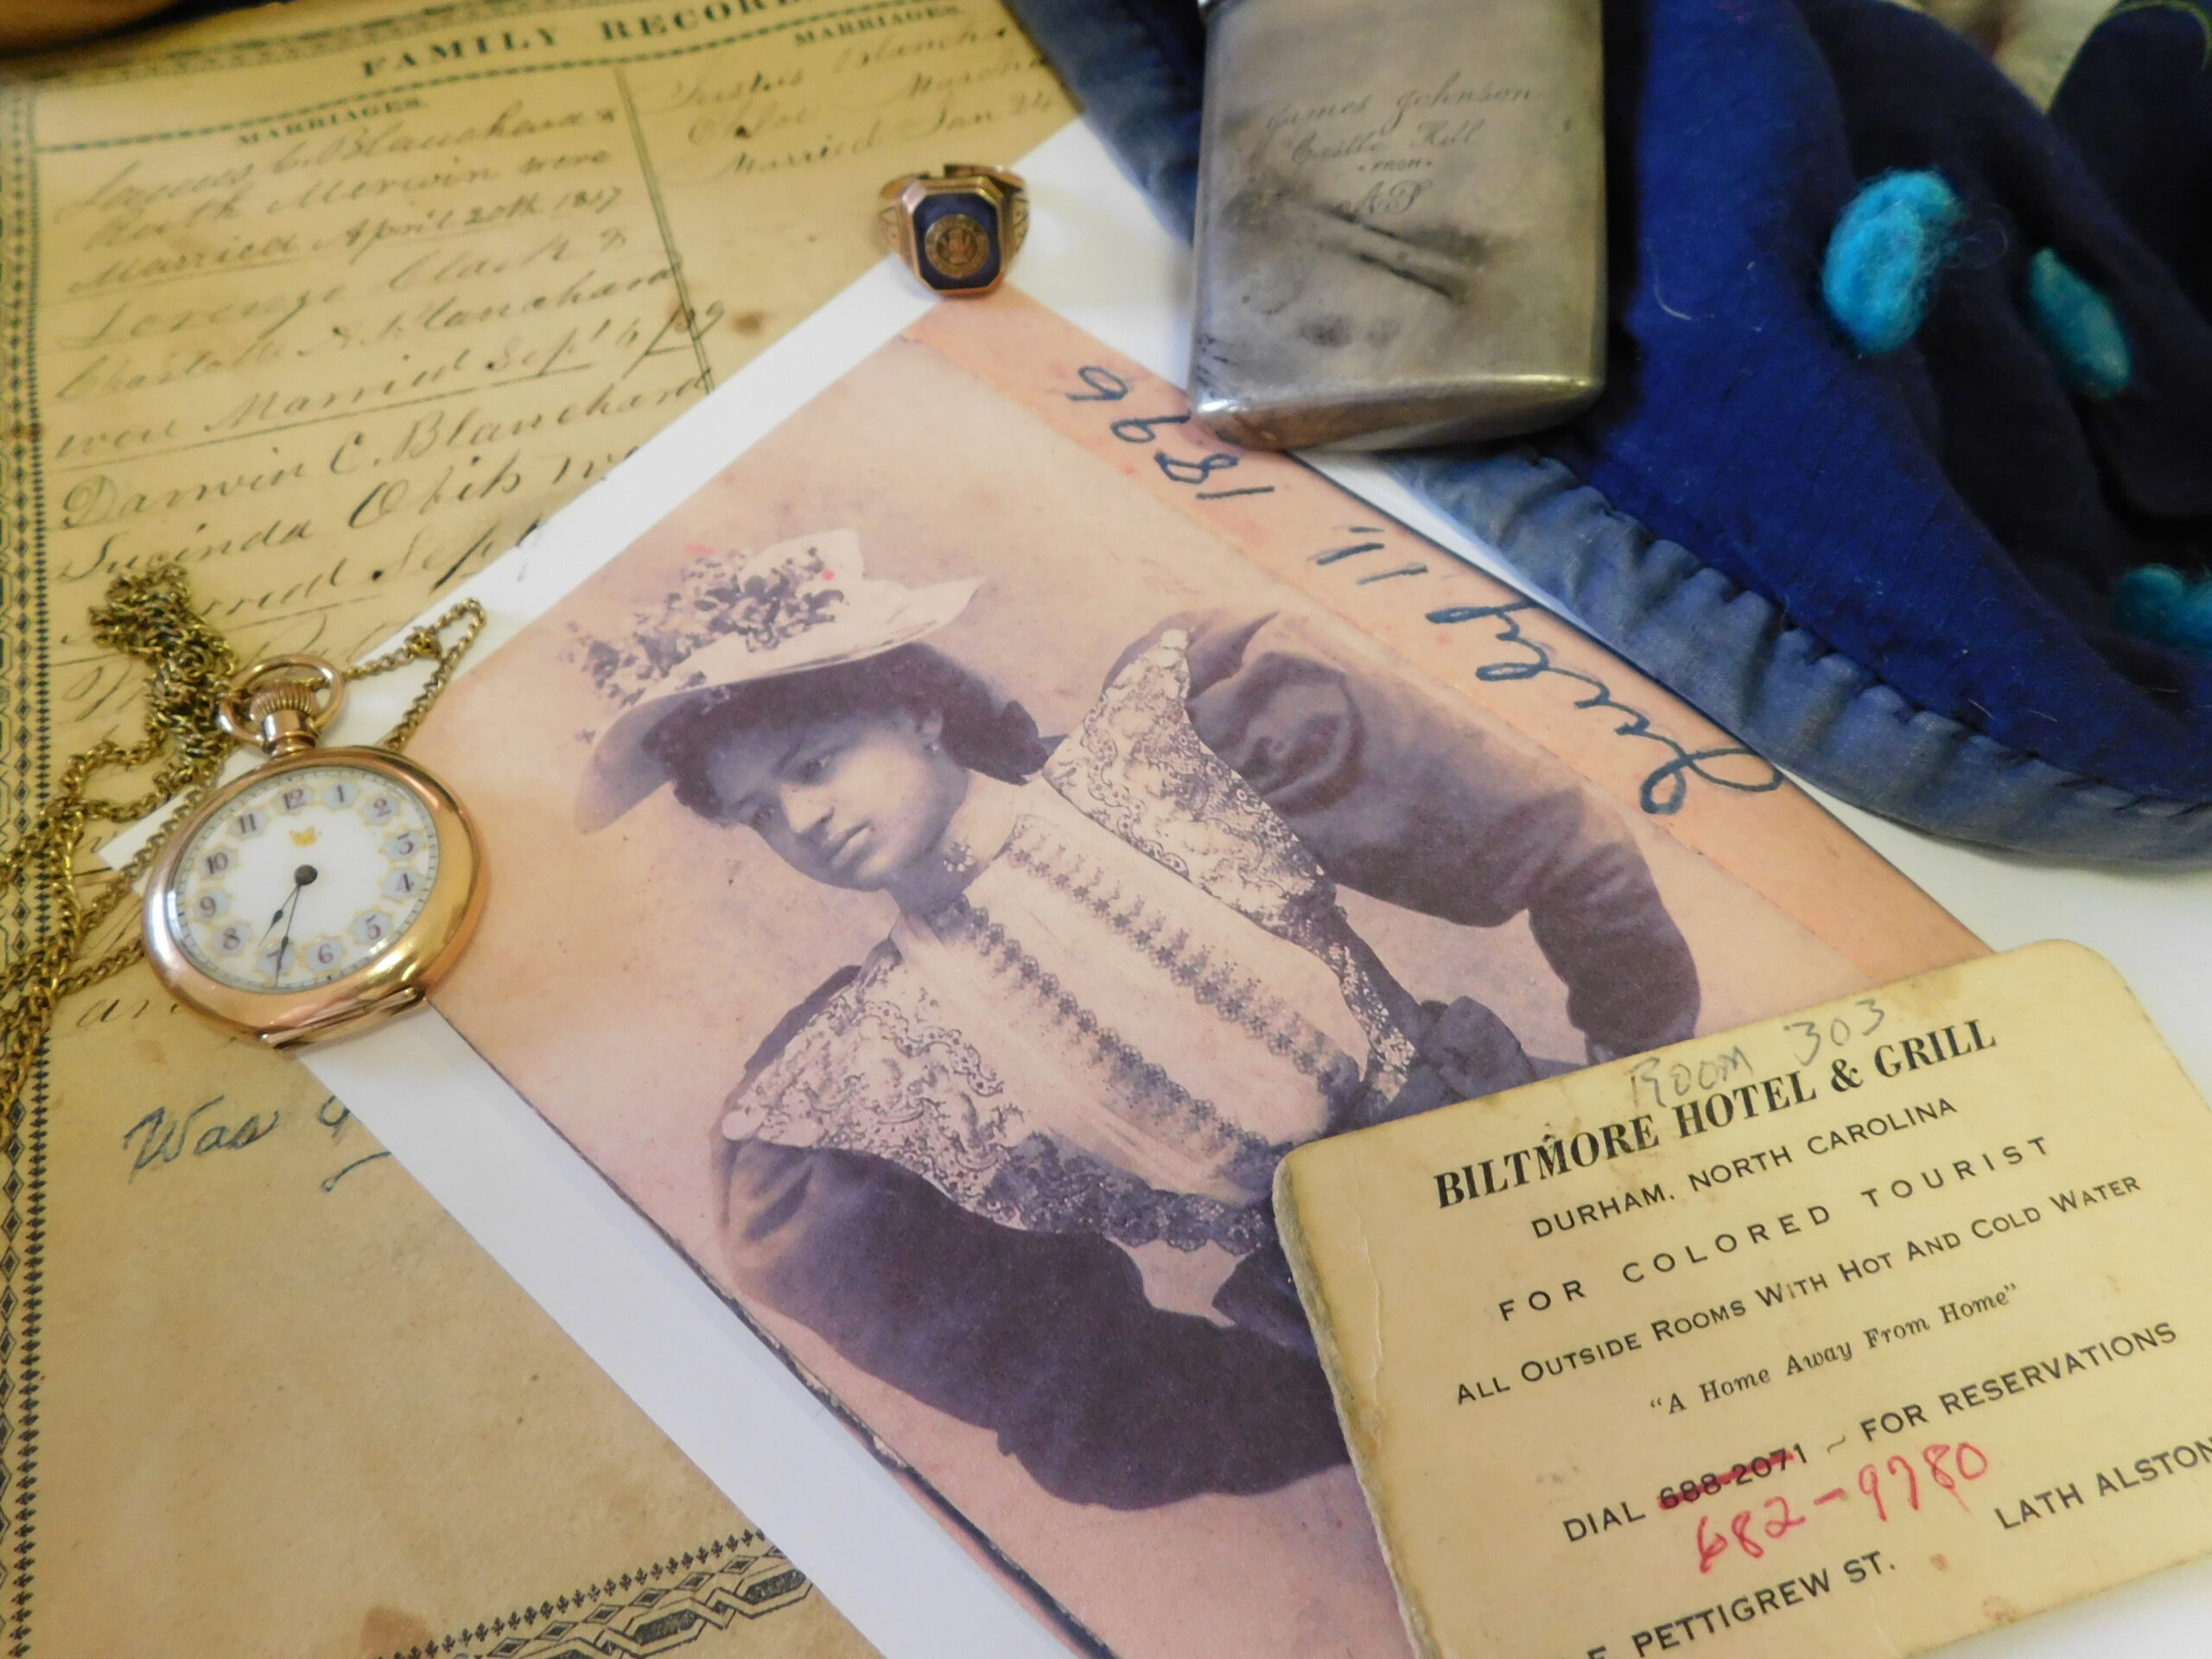 FAMILY RECORD
MARRIAGES.
James C. Blanchard &
Ruth Merwin were
Married April 20th 1817
Lorenzo Clark &
Charlotte A. Blanchard
were Married Sept 6/39
Darwin C. Blanchard
Lucinda
Sept
Was
MARRIAGES.
Justus Blanch
Chloe
Married Jan 24
James Johnson
Castle Hill
-FROM-
AP
July 11, 1896
12 1 2 3 4 5 6 7 8 9 10 11
Room 303
BILTMORE HOTEL & GRILL
DURHAM, NORTH CAROLINA
FOR COLORED TOURIST
ALL OUTSIDE ROOMS WITH HOT AND COLD WATER
"A Home Away From Home"
DIAL 688-2071 ~ FOR RESERVATIONS
682-9780
LATH ALSTON
E. PETTIGREW ST.